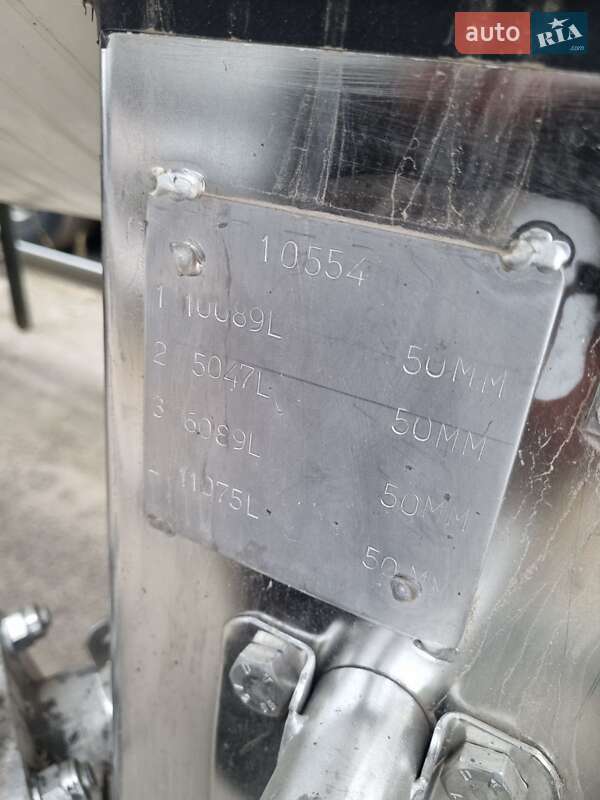 auto RIA .com
10554
1 10089L 50MM
2 5047L 50MM
3 6089L 50MM
- 11075L 50MM